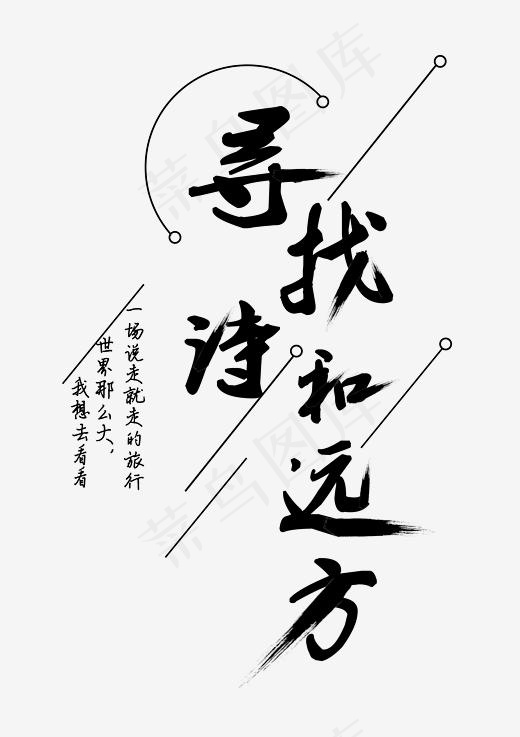 寻找
诗和远方
一场说走就走的旅行
世界那么大，
我想去看看
菜鸟图库
菜鸟图库